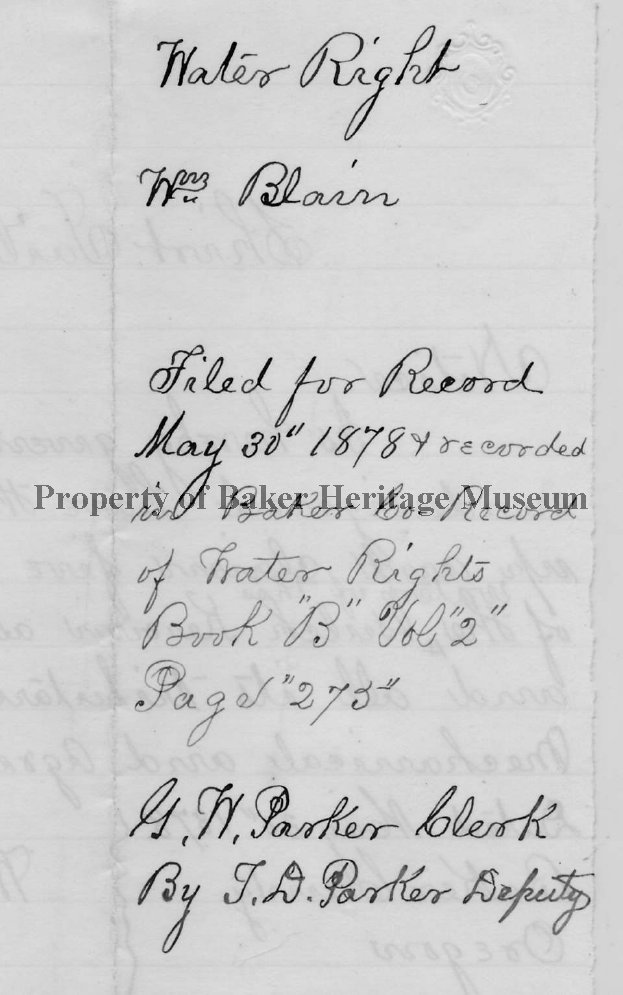 Water Right
Wm Blain
Filed for Record
May 30" 1878 & recorded
Property of Baker Heritage Museum
in Baker Co. Record
of Water Rights
Book "B" Vol "2"
Page "273"
G. W. Parker Clerk
By I. D. Parker Deputy